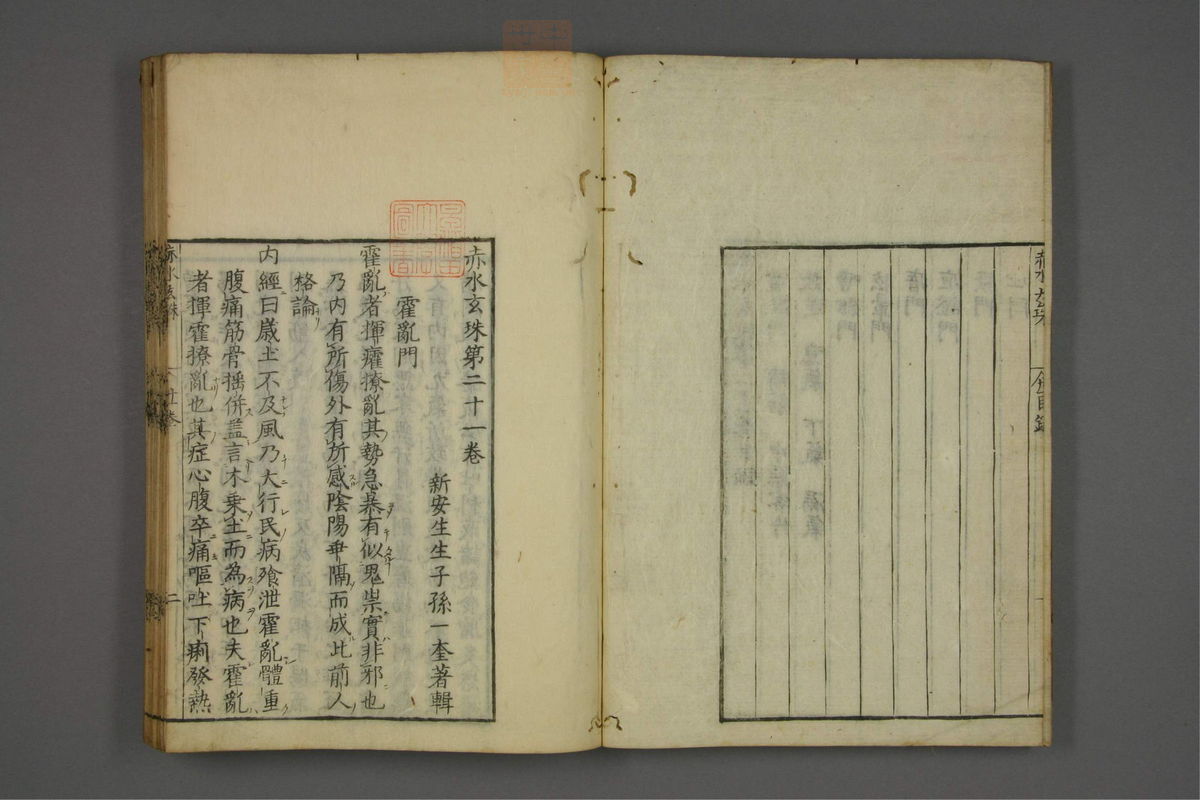 赤水玄珠
全目錄
赤水玄珠第二十一卷
新安生生子孫一奎著輯
霍亂門
霍亂者揮癨撩亂其勢急暴有似鬼祟實非邪也
乃内有所傷外有所感陰陽乖隔而成此前人
格論
内經曰歲土不及風乃大行民病飱泄霍亂體重
腹痛筋骨摇併盖言木乗土而為病也夫霍亂
者揮霍撩亂也其症心腹卒痛嘔吐下痢發熱
赤水玄珠
廿一卷
二